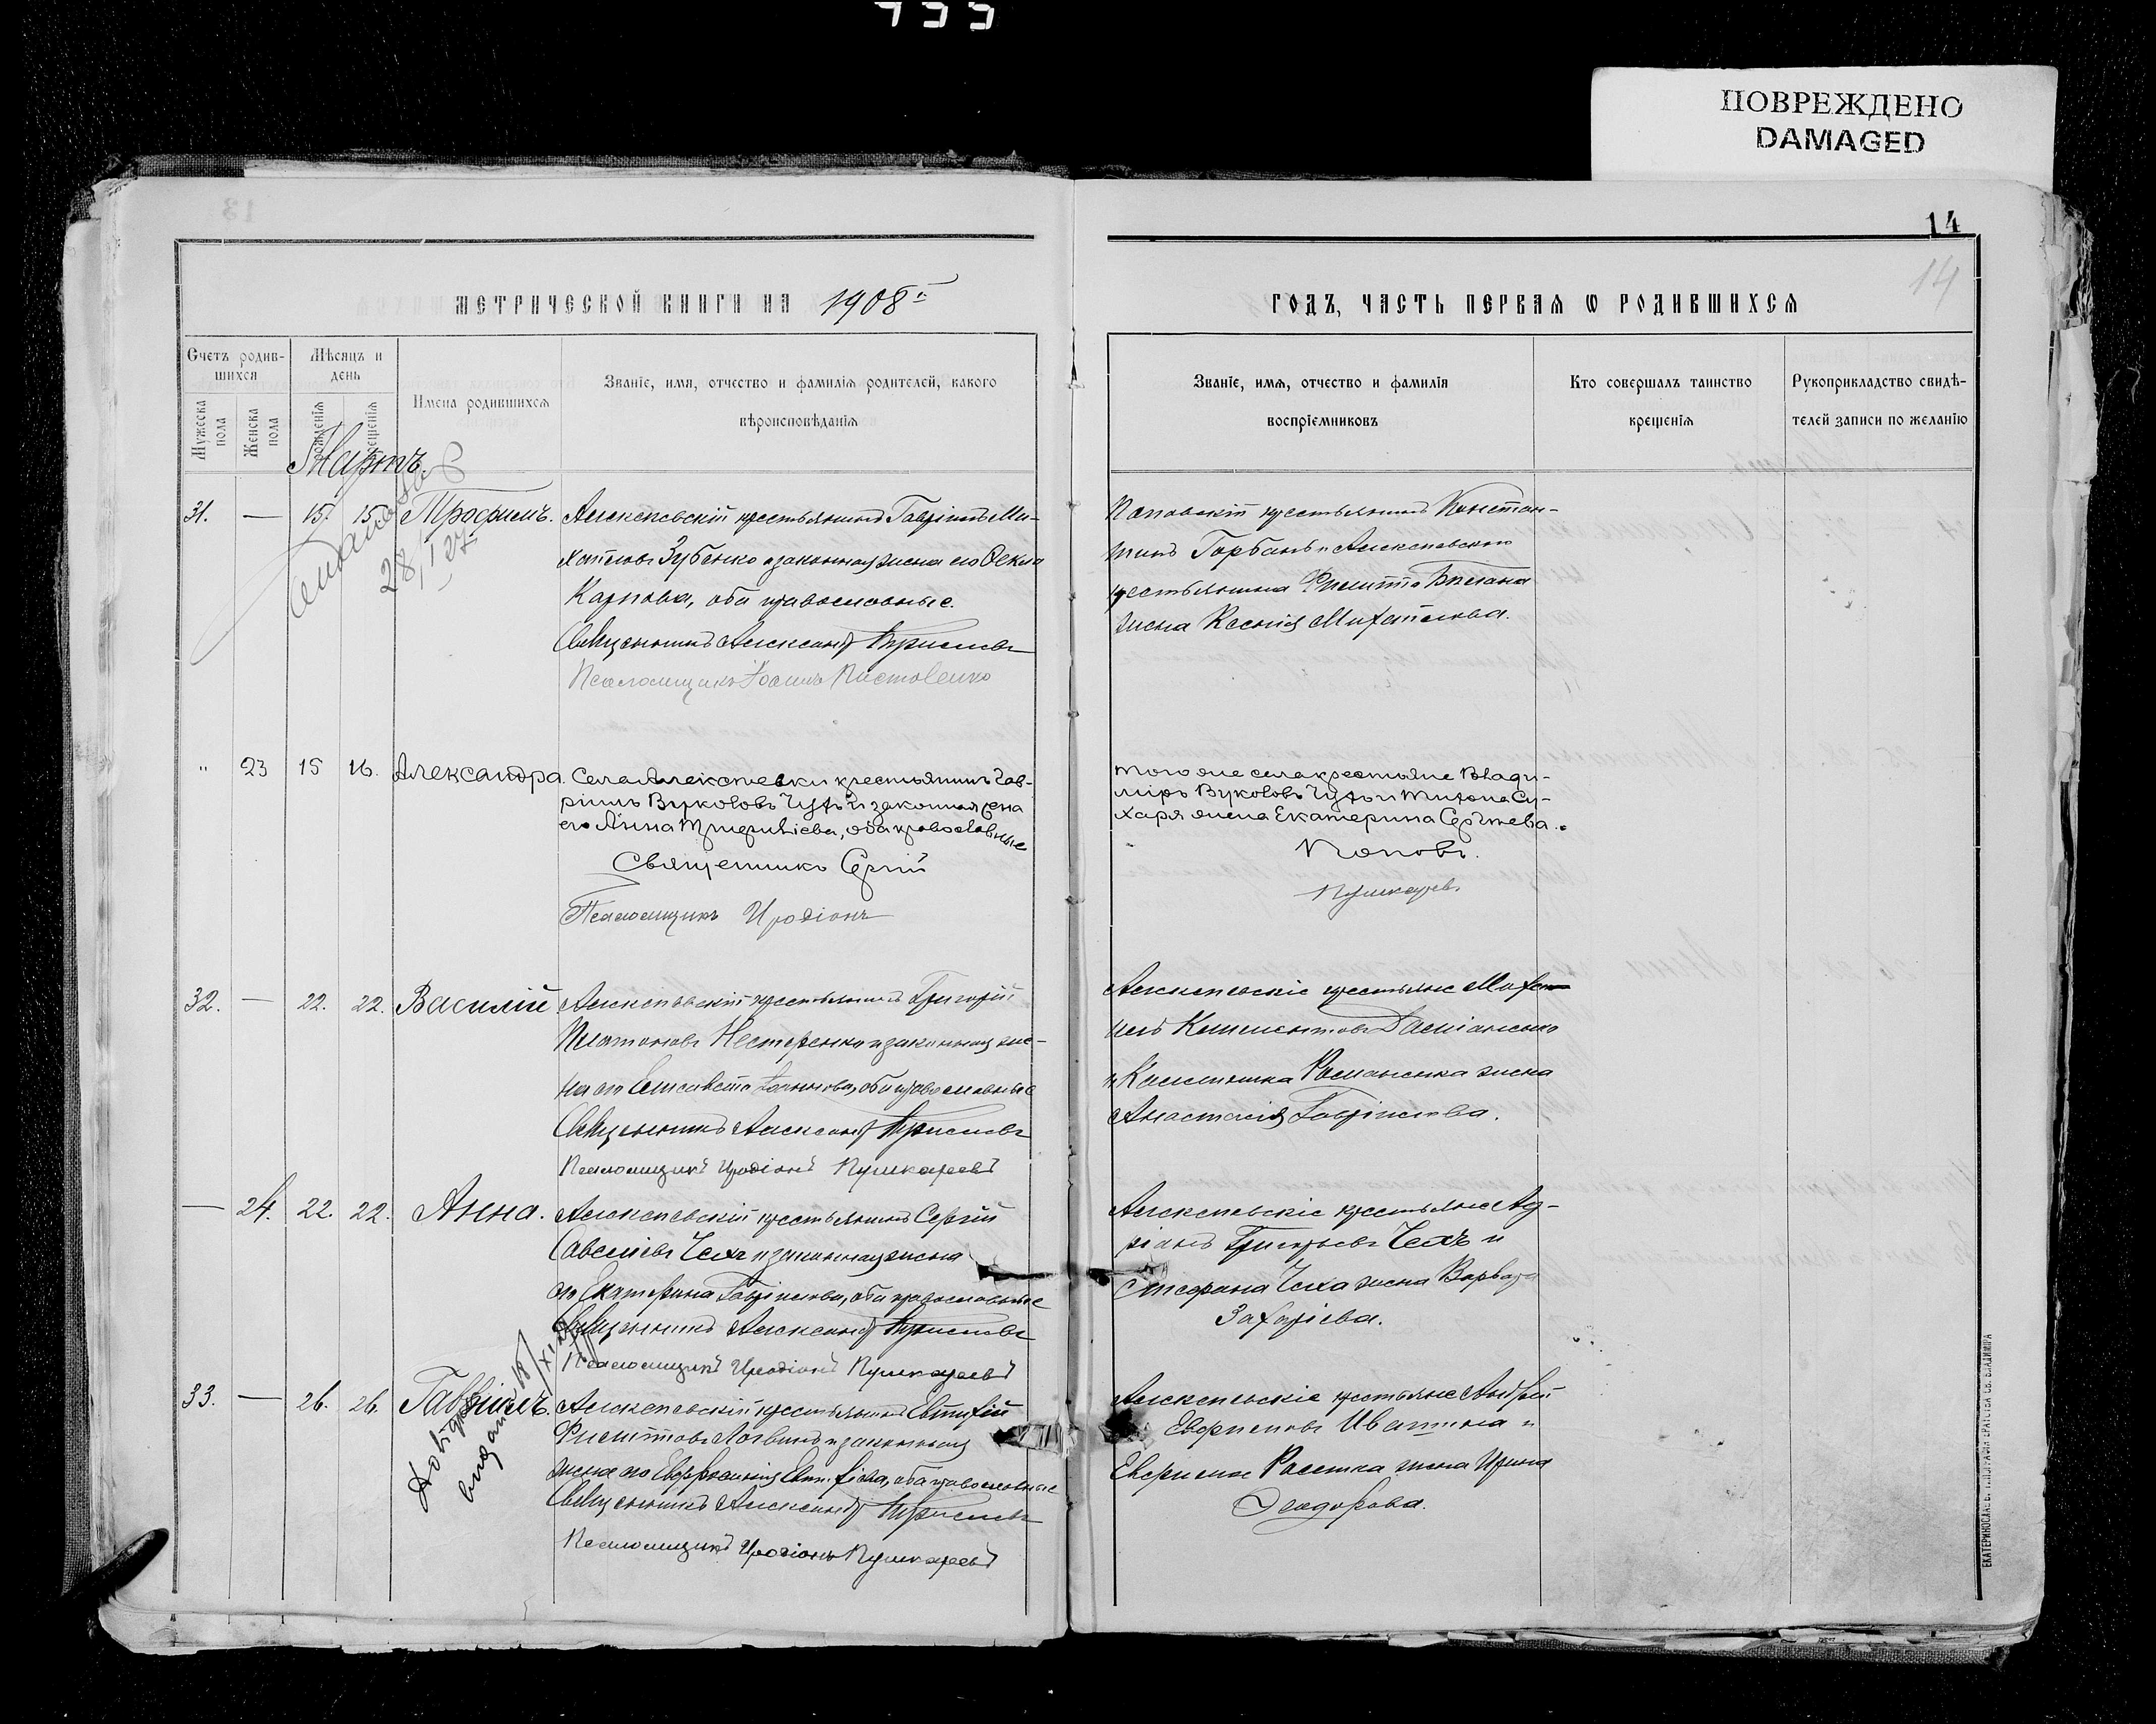 ПОВРЕЖДЕНО
DAMAGED
14
14
МЕТРИЧЕСКОЙ КНИГИ НА 1908 й
ГОДЪ, ЧАСТЬ ПЕРВАЯ Ѡ РОДИВШИХСЯ
Счетъ родив-
шихся
Мужеска пола
Женска пола
Мѣсяцъ и
день
рожденія
крещенія
Имена родившихся
Званіе, имя, отчество и фамилія родителей, какого
вѣроисповѣданія
Званіе, имя, отчество и фамилія
воспріемниковъ
Кто совершалъ таинство
крещенія
Рукоприкладство свидѣ-
телей записи по желанію
Мартъ.
31. — 15. 15. Трофимъ. Алексѣевскій крестьянинъ Гавріилъ Ми-
хаиловъ Зубенко и законная жена его Ѳекла
Карпова, оба православные.
Священникъ Александръ
Псаломщикъ Іоаннъ
28/I 27
Поповскій крестьянинъ Констан-
тинъ Горбань и Алексѣевскаго
крестьянина Филиппа жена Ксенія Михаилова.
" 23 15 16. Александра. Села Алексѣевки крестьянинъ Гав-
ріилъ Вуколовъ Чухъ и законная жена
его Анна Григоріева, оба православные
Священникъ Сергій
Псаломщикъ Иродіонъ
того же села крестьяне Влади-
міръ Вуколовъ Чухъ и Тихона Су-
харя жена Екатерина Сергѣева.
Поповъ.
Пушкаревъ
32. — 22. 22. Василій. Алексѣевскій крестьянинъ Григорій
Платоновъ Нестеренко и законная же-
на его Елисавета оба православные
Священникъ Александръ
Псаломщикъ Иродіонъ Пушкаревъ
Алексѣевскіе крестьяне Миха-
илъ Климентовъ Даміаненко
и Романенка жена
Анастасія Гавріилова.
— 24. 22. 22. Анна. Алексѣевскій крестьянинъ Сергій
Савеліевъ Чехъ и законная жена
его Екатерина Гавріилова, оба православные
Священникъ Александръ
Псаломщикъ Иродіонъ Пушкаревъ
Алексѣевскіе крестьяне Ад-
ріанъ Григорьевъ Чехъ и
Стефана Чеха жена Варвара
Захаріева.
33. — 26. 26. Гавріилъ. Алексѣевскій крестьянинъ Евтихій
Филипповъ Логвинъ и законная
жена его оба православные
Священникъ Александръ
Псаломщикъ Иродіонъ Пушкаревъ
Алексѣевскіе крестьяне Андрей
Евфиміевъ и
жена Ирина
Ѳеодорова.